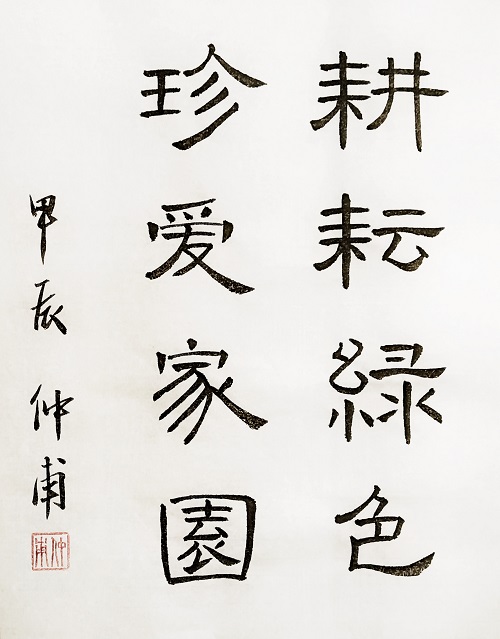 耕耘綠色
珍爱家園
甲辰 仲甫
仲甫